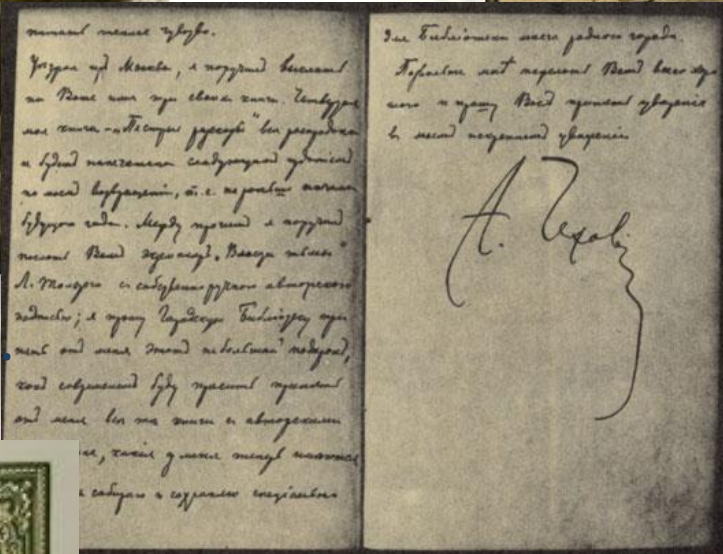 питаю теплое чувство.
Уезжая из Москвы, я поручилъ выслать
на Ваше имя три своихъ книги. Четвертая
моя книга — „Пестрые разсказы" вся распродана
и будетъ напечатана следующимъ изданіемъ
по моемъ возвращеніи, т. е. не раньше начала
будущаго года. Между прочимъ я поручилъ
послать Вамъ экземпляръ „Власти тьмы"
Л. Толстого съ собственноручной авторскою
подписью; я прошу Городскую Библіотеку при-
нять отъ меня этотъ небольшой подарокъ,
современемъ буду просить принять
отъ меня все те книги съ авторскими
какія у меня теперь имеются
собираю и сохраняю спеціально
для Библіотеки моего родного города.
Позвольте мне пожелать Вамъ всего хоро-
шаго и прошу Васъ принять уверение
въ моемъ искреннемъ уваженіи
А. Чеховъ